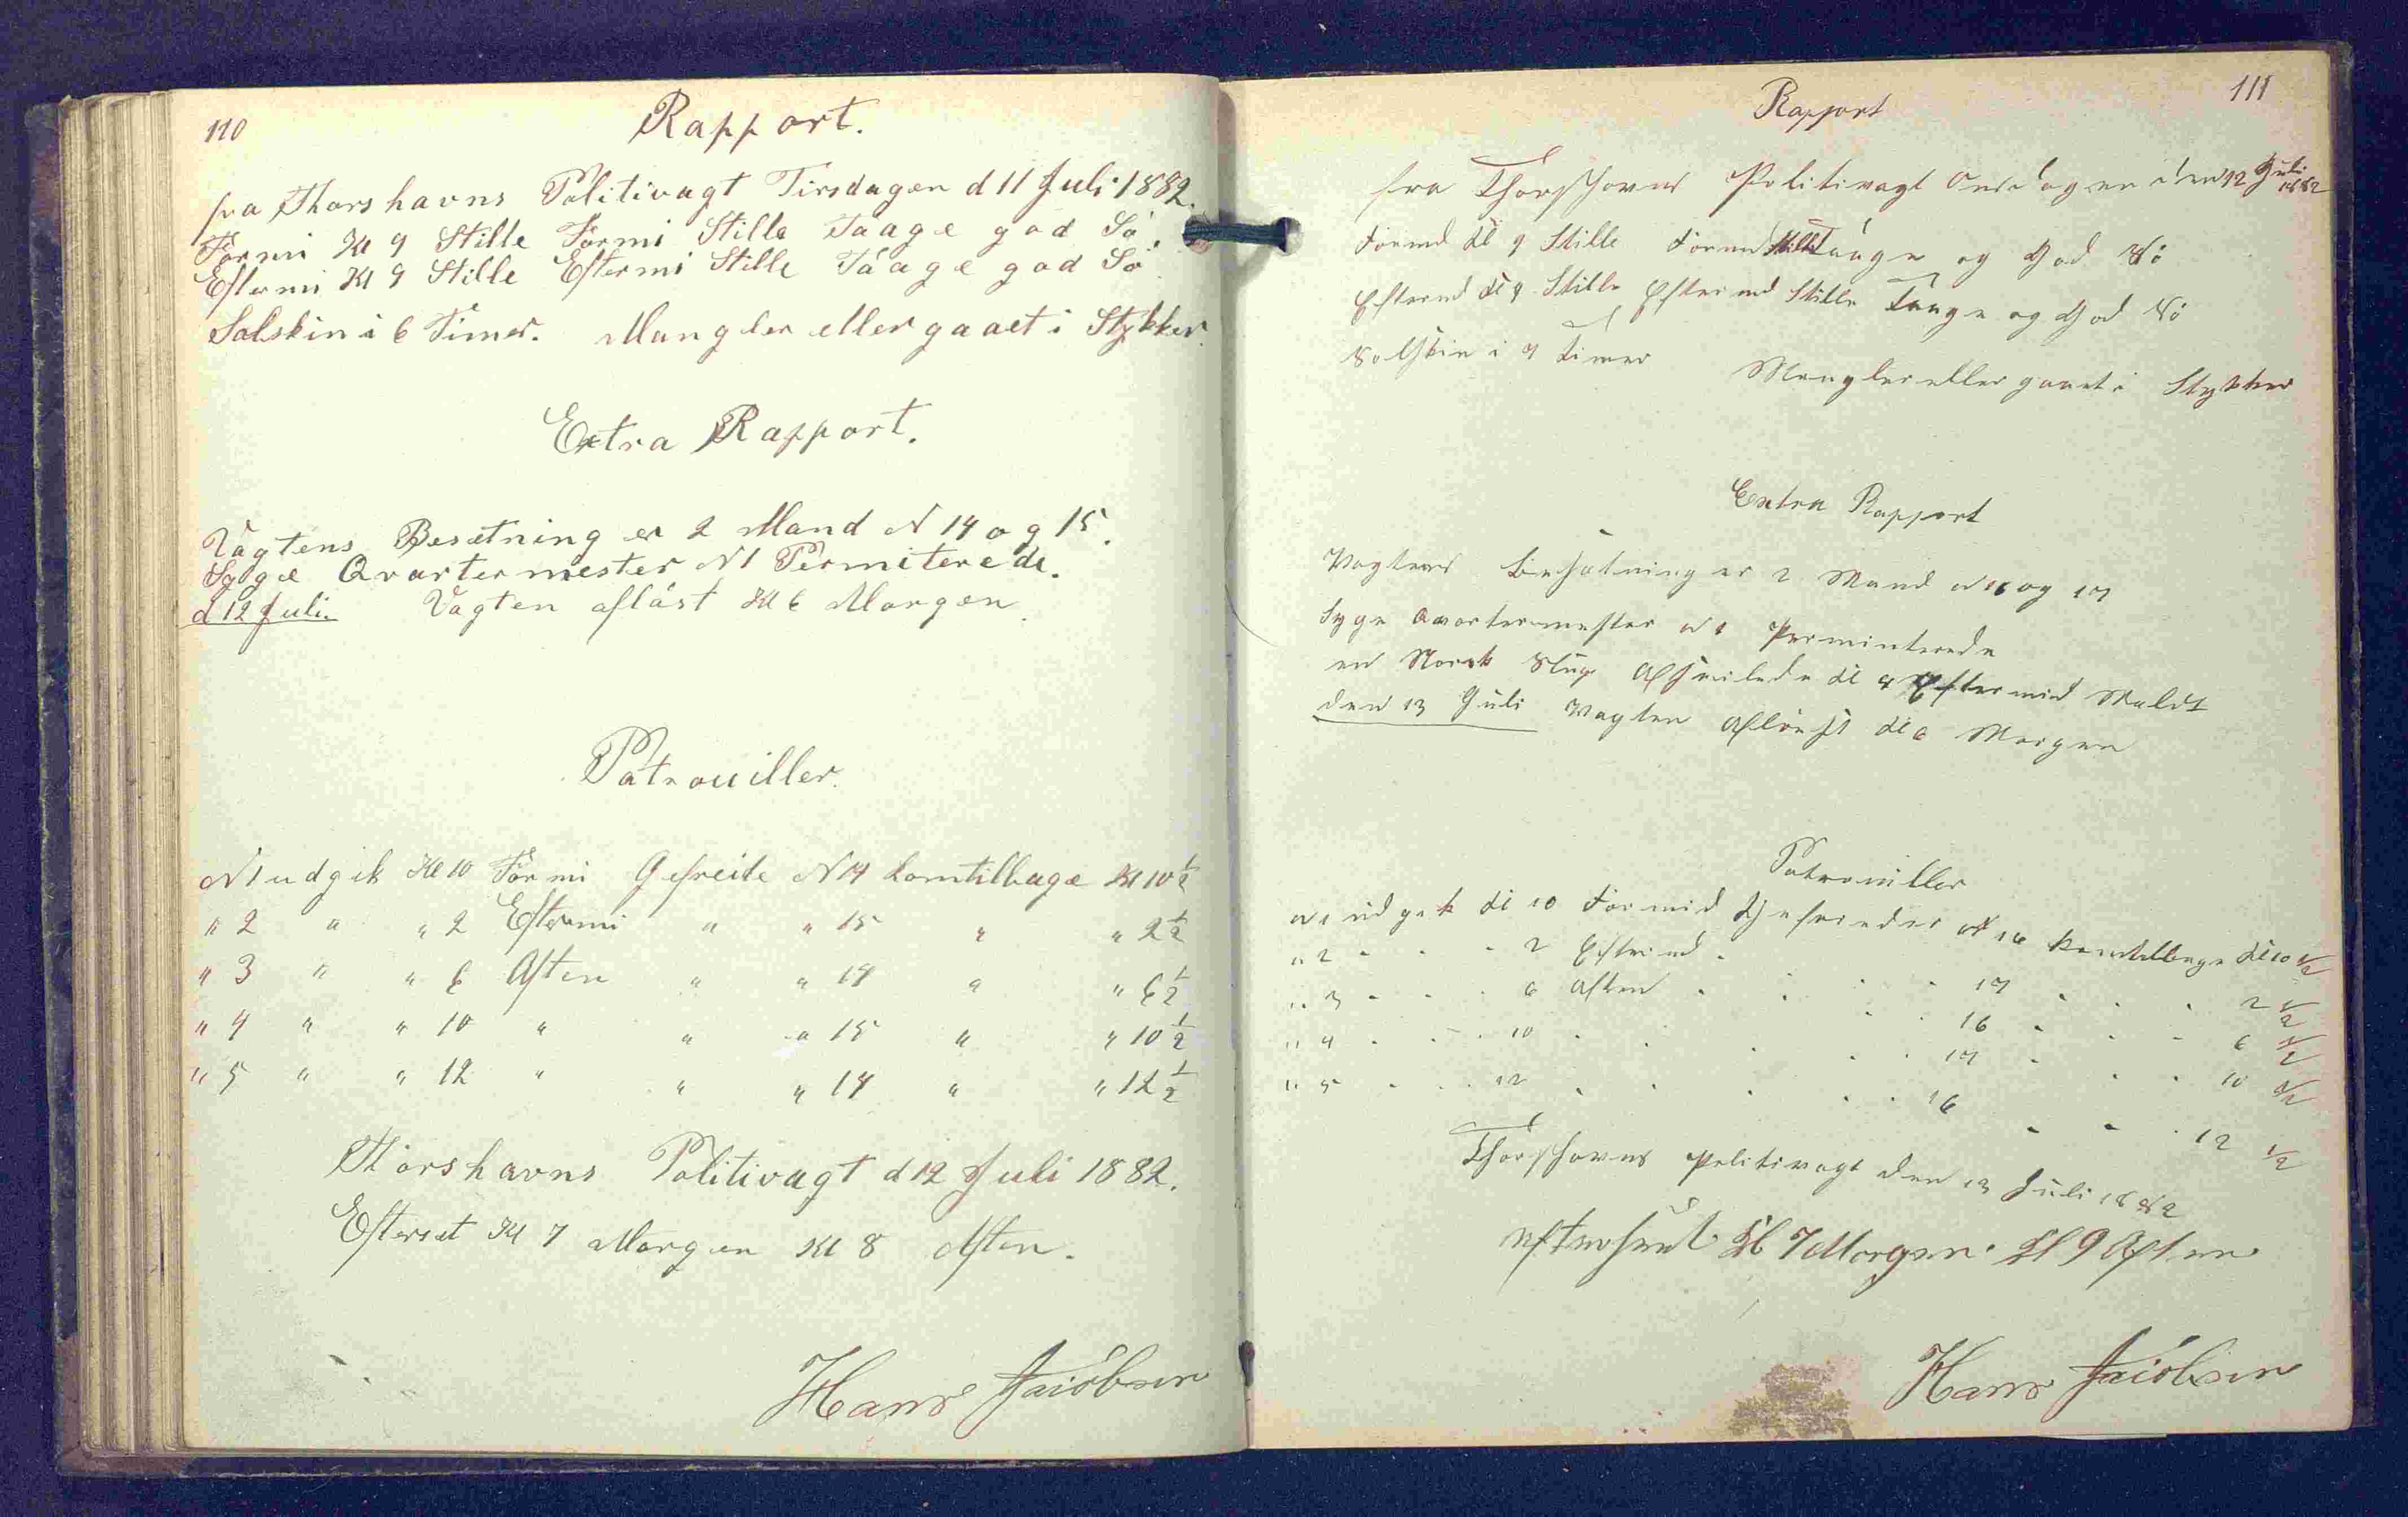 110
Rapport.
fra Thorshavns Politivagt Tirsdagen d 11 Juli 1882.
Formi Kl 9 Stille Formi Stille Taage god Sö.
Eftermi Kl 9 Stille Eftermi Stille Táage god Sö
Solskin i 6 Timer. Mangler eller gaaet i Stykker.
Extra Rapport.
Vagtens Besætning er 2 Mand N 14 og 15.
Syge Qvartermester N1 Permiterede.
d 12 Juli. Vagten aflöst Kl 6 Morgen.
Patrouiller.
N1 udgik Kl 10 Formi Gefreite N 14 komtilbage Kl 10 1/2
" 2 " " 2 Eftermi " " 15 " " 2 1/2
" 3 " " 6 Aften " " 14 " " 6 1/2
" 4 " " 10 " " " 15 " " 10 1/2
" 5 " " 12 " " " 14 " " 12 1/2
Thorshavns Politivagt d 12 Juli 1882.
Efterset Kl 7 Morgen Kl 8 Aften.
Hans Jacobsen
111
Rapport
fra Thorshavns Politivagt Onsdagen den 12 Juli 1882
Formd Kl 9 Stille Formd Stille Taage og God Sö
Eftermd Kl 9 Stille Eftermd Stille Taage og God Sö
Solskin i 7 Timer Mangler eller gaaet i Stykker
Extra Rapport
Vagtens Besætning er 2 Mand N 16 og 17
Syge Qvartermester N 1 Perminterede
en Norsk Slup Afseilede Kl 4 Eftermid
den 13 Juli Vagten Aflöest Kl 6 Morgen
Patrouiller
N 1 udgik Kl 10 Formid Gefreider N 16 komtilbage Kl 10 1/2
" 2 - - - 2 Eftermd - - - 17 - - - 2 1/2
" 3 - - - 6 Aften - - - 16 - - - 6 1/2
" 4 - - - 10 - - - 17 - - - 10 1/2
" 5 - - - 12 - - - 16 - - - 12 1/2
Thorshavns Politivagt den 13 Juli 1882
Efterseet Kl 7 Morgen. Kl 9 Aften
Hans Jacobsen